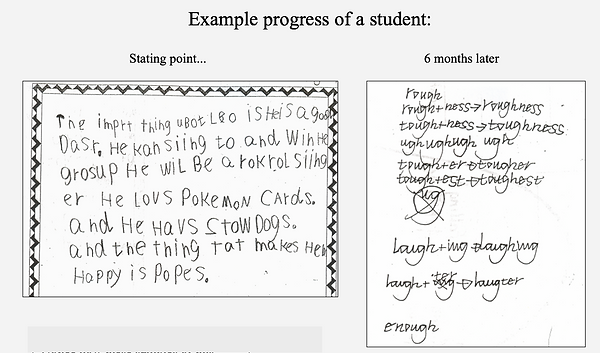 Example progress of a student:
Stating point...
6 months later
The imprt thing uBot LEO iS Heis a good
Dasr. He kan siing to and Win He
grosup He wiL Be a rokrol siing
er He Lovs POKEMON CArds.
and He Havs StowDogs.
and the thing tat makes Hem
Happy is PoPes.
rough
rough+ness→roughness
tough+ness→toughness
ugh ugh ugh ugh
tough+er→tougher
tough+est→toughest
ug
Laugh+ing→laughing
laugh+ter→laugter
enough